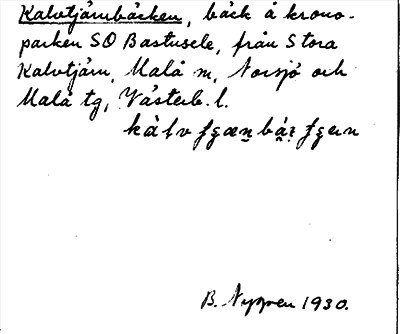 Kalvtjärnbäcken, bäck å krono-
parken SO Bastusele, från Stora
Kalvtjärn, Malå m, Norsjö och
Malå tg, Västerb. l.
B. Nygren 1930.